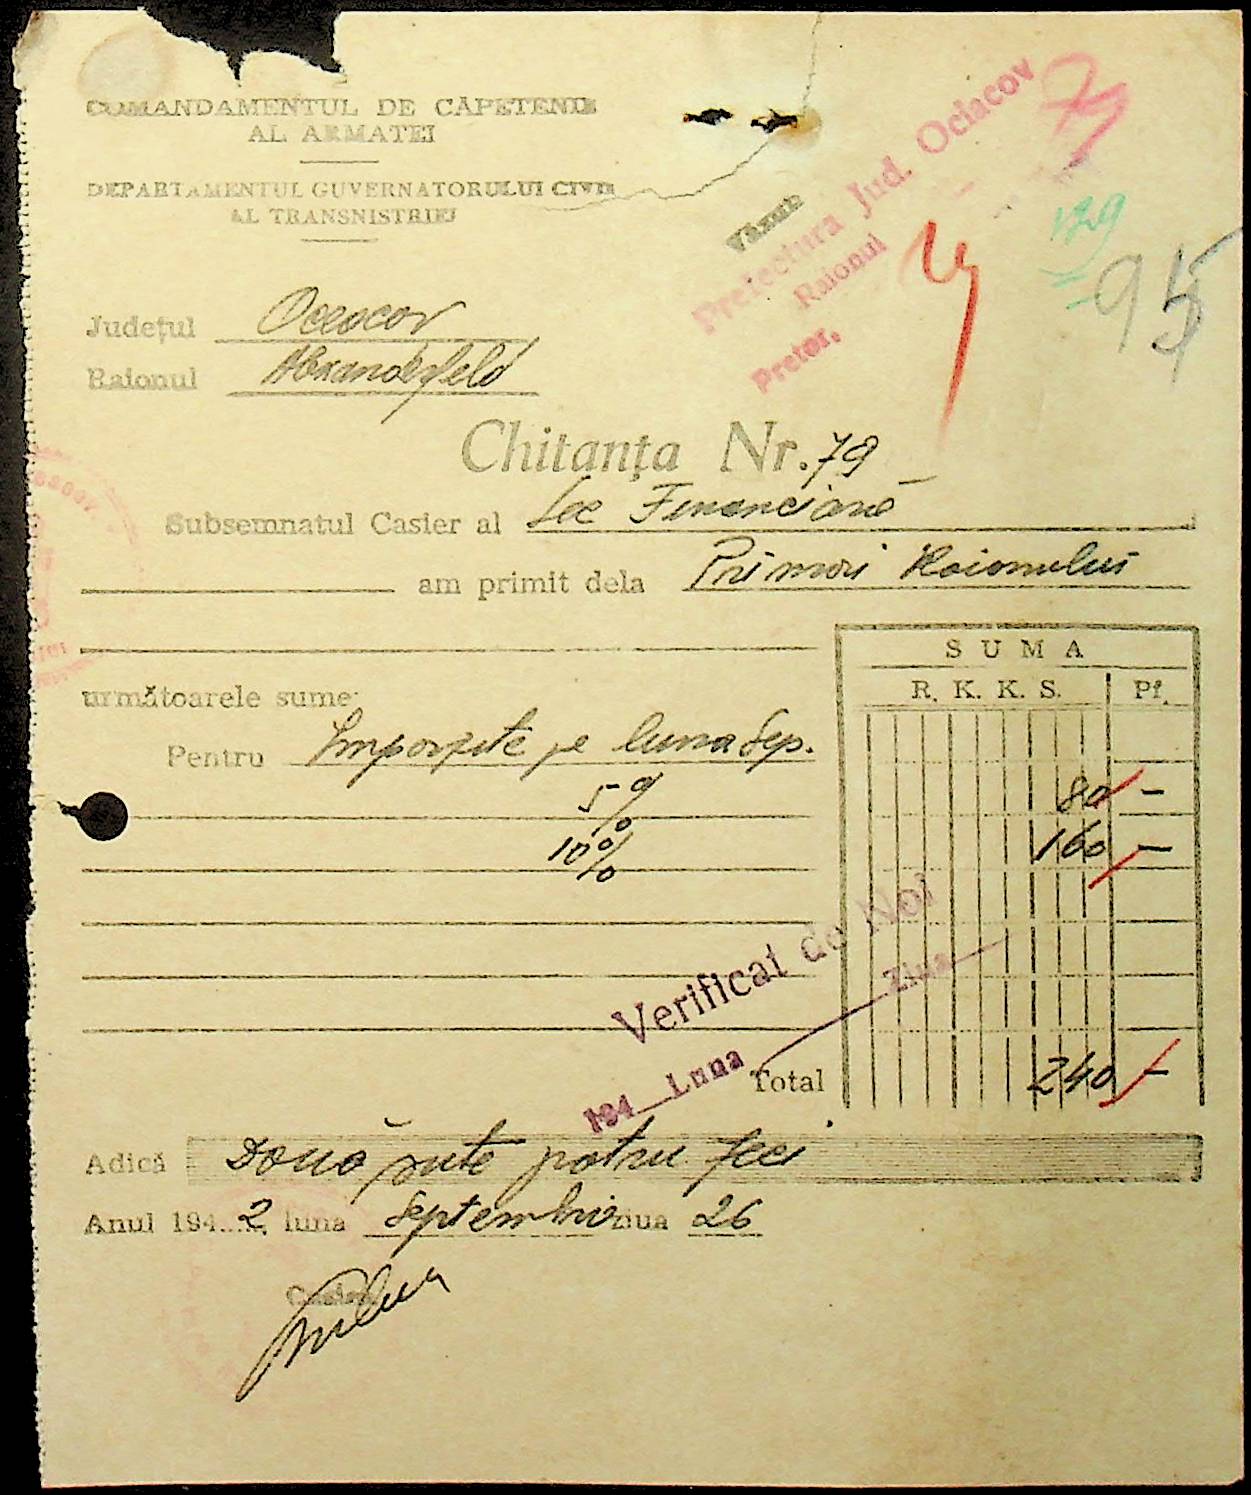 COMANDAMENTUL DE CĂPETENIE
AL ARMATEI
DEPARTAMENTUL GUVERNATORULUI CIVIL
AL TRANSNISTRIEI
Văzut
Prefectura Jud. Ociacov
Raionul
Pretor,
129
95
Județul Oceacov
Raionul Alexanderfeld
Chitanța Nr. 79
Subsemnatul Casier al Sec Financiară
am primit dela Primări Raionului
SUMA
R. K. K. S. Pf.
următoarele sume
Pentru Impozite pe luna Sep.
5% 80 —
10% 160 —
Verificat de Noi
194 Luna Ziua
Total 240 —
Adică Două sute patru zeci
Anul 194 2 luna Septembrie ziua 26
Casier